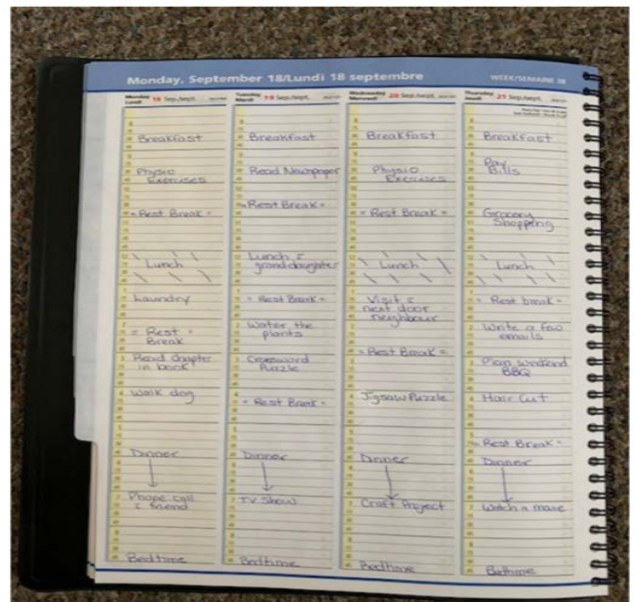 Monday, September 18/Lundi 18 septembre
WEEK/SEMAINE 38
Monday
Lundi
18 Sep./sept.
Breakfast
Physio
Exercises
= Rest Break =
Lunch
Laundry
= Rest =
Break
Read Chapter
in book
Walk dog
Dinner
Phone call
c̄ friend
Bedtime
Tuesday
Mardi
19 Sep./sept.
Breakfast
Read Newspaper
=Rest Break=
Lunch c̄
granddaughter
= Rest Break =
Water the
plants
Crossword
Puzzle
= Rest Break =
Dinner
TV Show
Bedtime
Wednesday
Mercredi
20 Sep./sept.
Breakfast
Physio
Exercises
= Rest Break =
Lunch
Visit c̄
next door
neighbour
= Rest Break =
Jigsaw Puzzle
Dinner
Craft Project
Bedtime
Thursday
Jeudi
21 Sep./sept.
Breakfast
Pay
Bills
Grocery
Shopping
Lunch
= Rest break =
Write a few
emails
Plan weekend
BBQ
Hair Cut
= Rest Break =
Dinner
Watch a movie
Bedtime